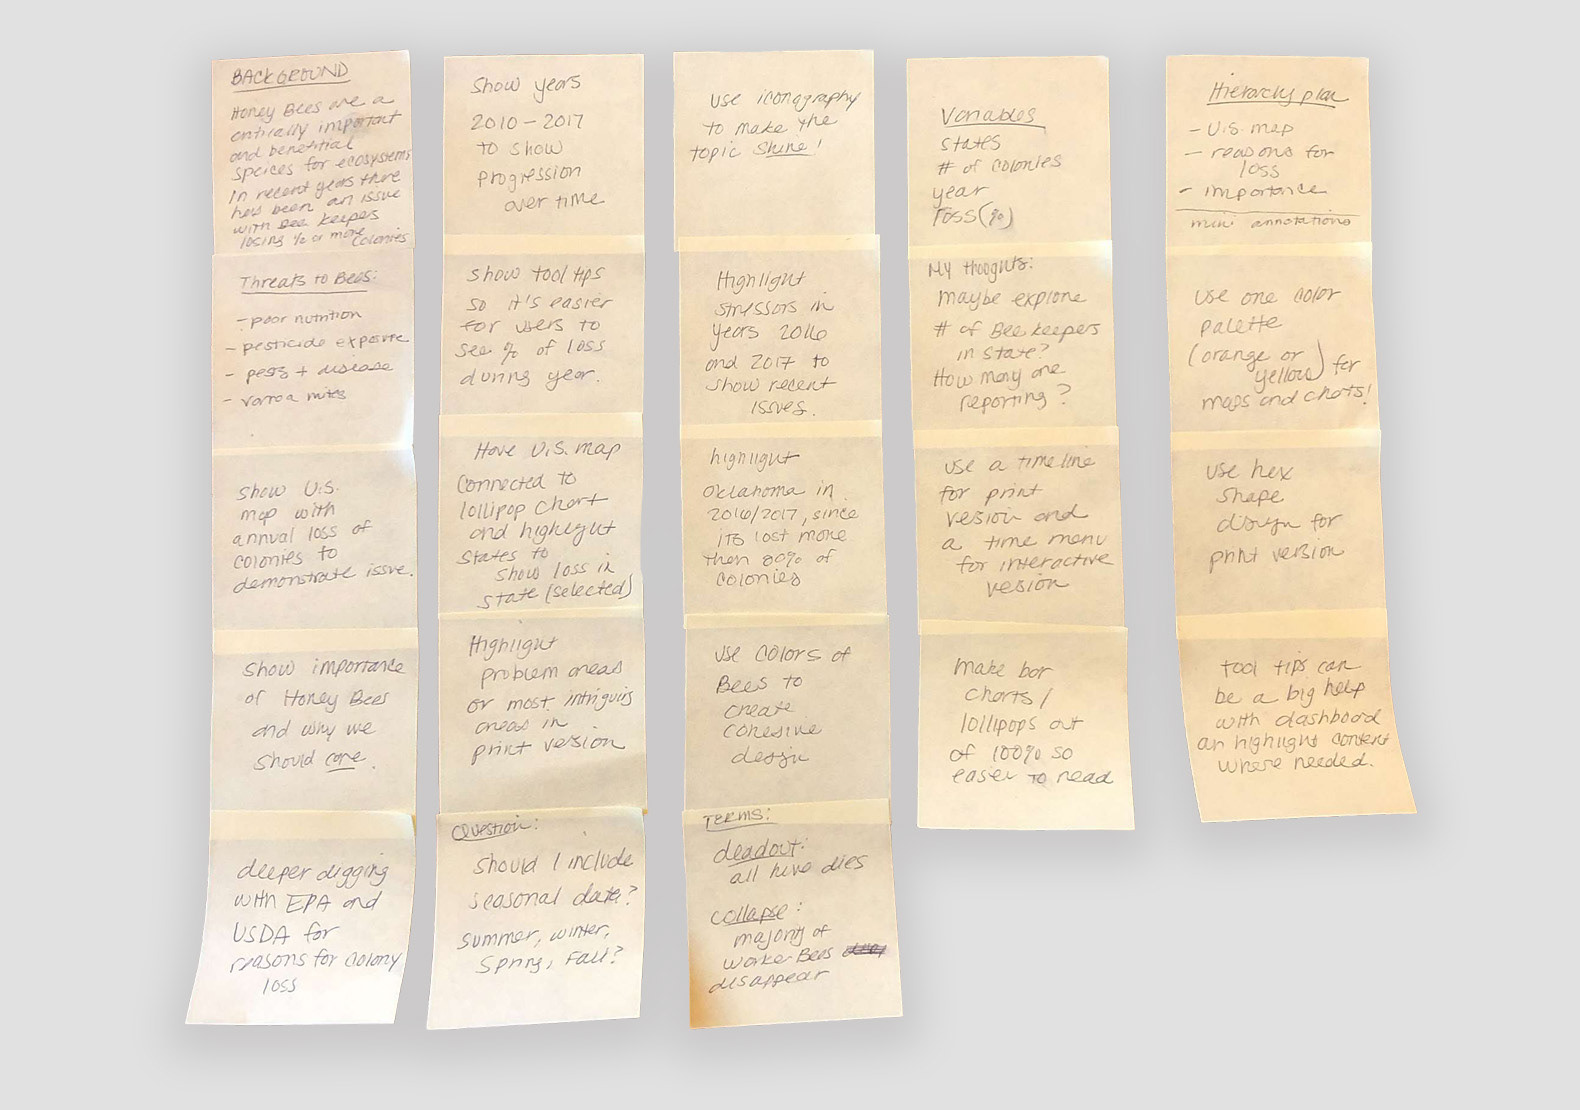 BACKGROUND
Honey Bees are a
critically important
and benefitial
speices for ecosystems
In recent years there
has been an issue
with Bee keepers
losing % or more
colonies
Threats to Bees:
- poor nutrition
- pesticide exposure
- pests + disease
- varroa mites
Show U.S.
map with
annual loss of
colonies to
demonstrate issue.
Show importance
of Honey Bees
and why we
should care.
deeper digging
with EPA and
USDA for
reasons for colony
loss
Show years
2010 - 2017
to show
progression
over time
Show tool tips
so it's easier
for users to
see % of loss
during year.
Have U.S. map
connected to
lollipop chart
and highlight
states to
show loss in
state (selected)
Highlight
problem areas
or most intriguing
areas in
print version
Question:
Should I include
seasonal data?
Summer, winter,
Spring, Fall?
use iconography
to make the
topic shine!
Highlight
stressors in
years 2016
and 2017 to
show recent
issues.
highlight
Oklahoma in
2016/2017, since
its lost more
then 80% of
colonies
use colors of
Bees to
create
cohesive
design
TERMS:
deadout:
all hive dies
collapse:
majority of
worker Bees
disappear
Variables
states
# of colonies
year
loss (%)
My thoughts:
maybe explore
# of Bee keepers
in state?
How many are
reporting?
use a timeline
for print
version and
a time menu
for interactive
version
make bar
charts/
lollipops out
of 100% so
easier to read
Hierarchy plan
- U.S. map
- reasons for
loss
- importance
mini annotations
use one color
palette
(orange or
yellow) for
maps and charts!
use hex
shape
design for
print version
tool tips can
be a big help
with dashboard
an highlight content
where needed.